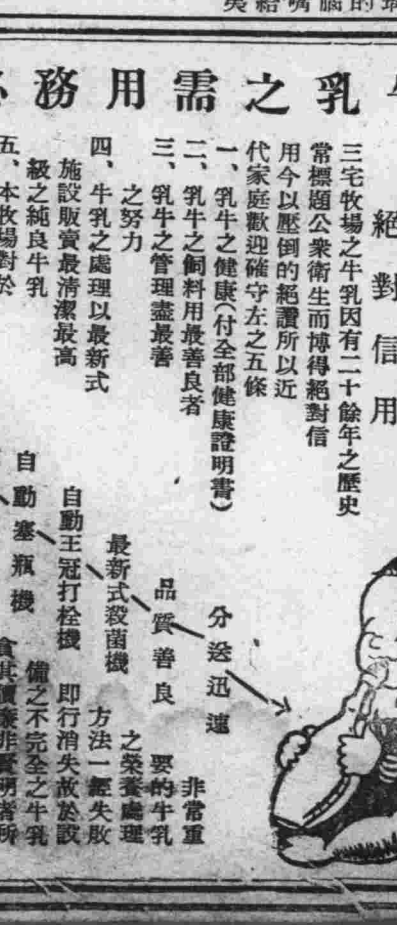 乳之需用務
絕對信用
三宅牧場之牛乳因有二十餘年之歷史
常標題公衆衛生而博得絕對信
用今以壓倒的絕讚所以近
代家庭歡迎確守左之五條
一、乳牛之健康(付全部健康證明書)
二、乳牛之飼料用最善良者
三、乳牛之管理盡最善
之努力
四、牛乳之處理以最新式
施設販賣最清潔最高
級之純良牛乳
五、本牧場對於
分送迅速
品質善良
最新式殺菌機
自動王冠打栓機
自動塞瓶機
非常重
要的牛乳
之榮養處理
方法一經失敗
即行消失故於設
備之不完全之牛乳
貪其價廉非賢明者所